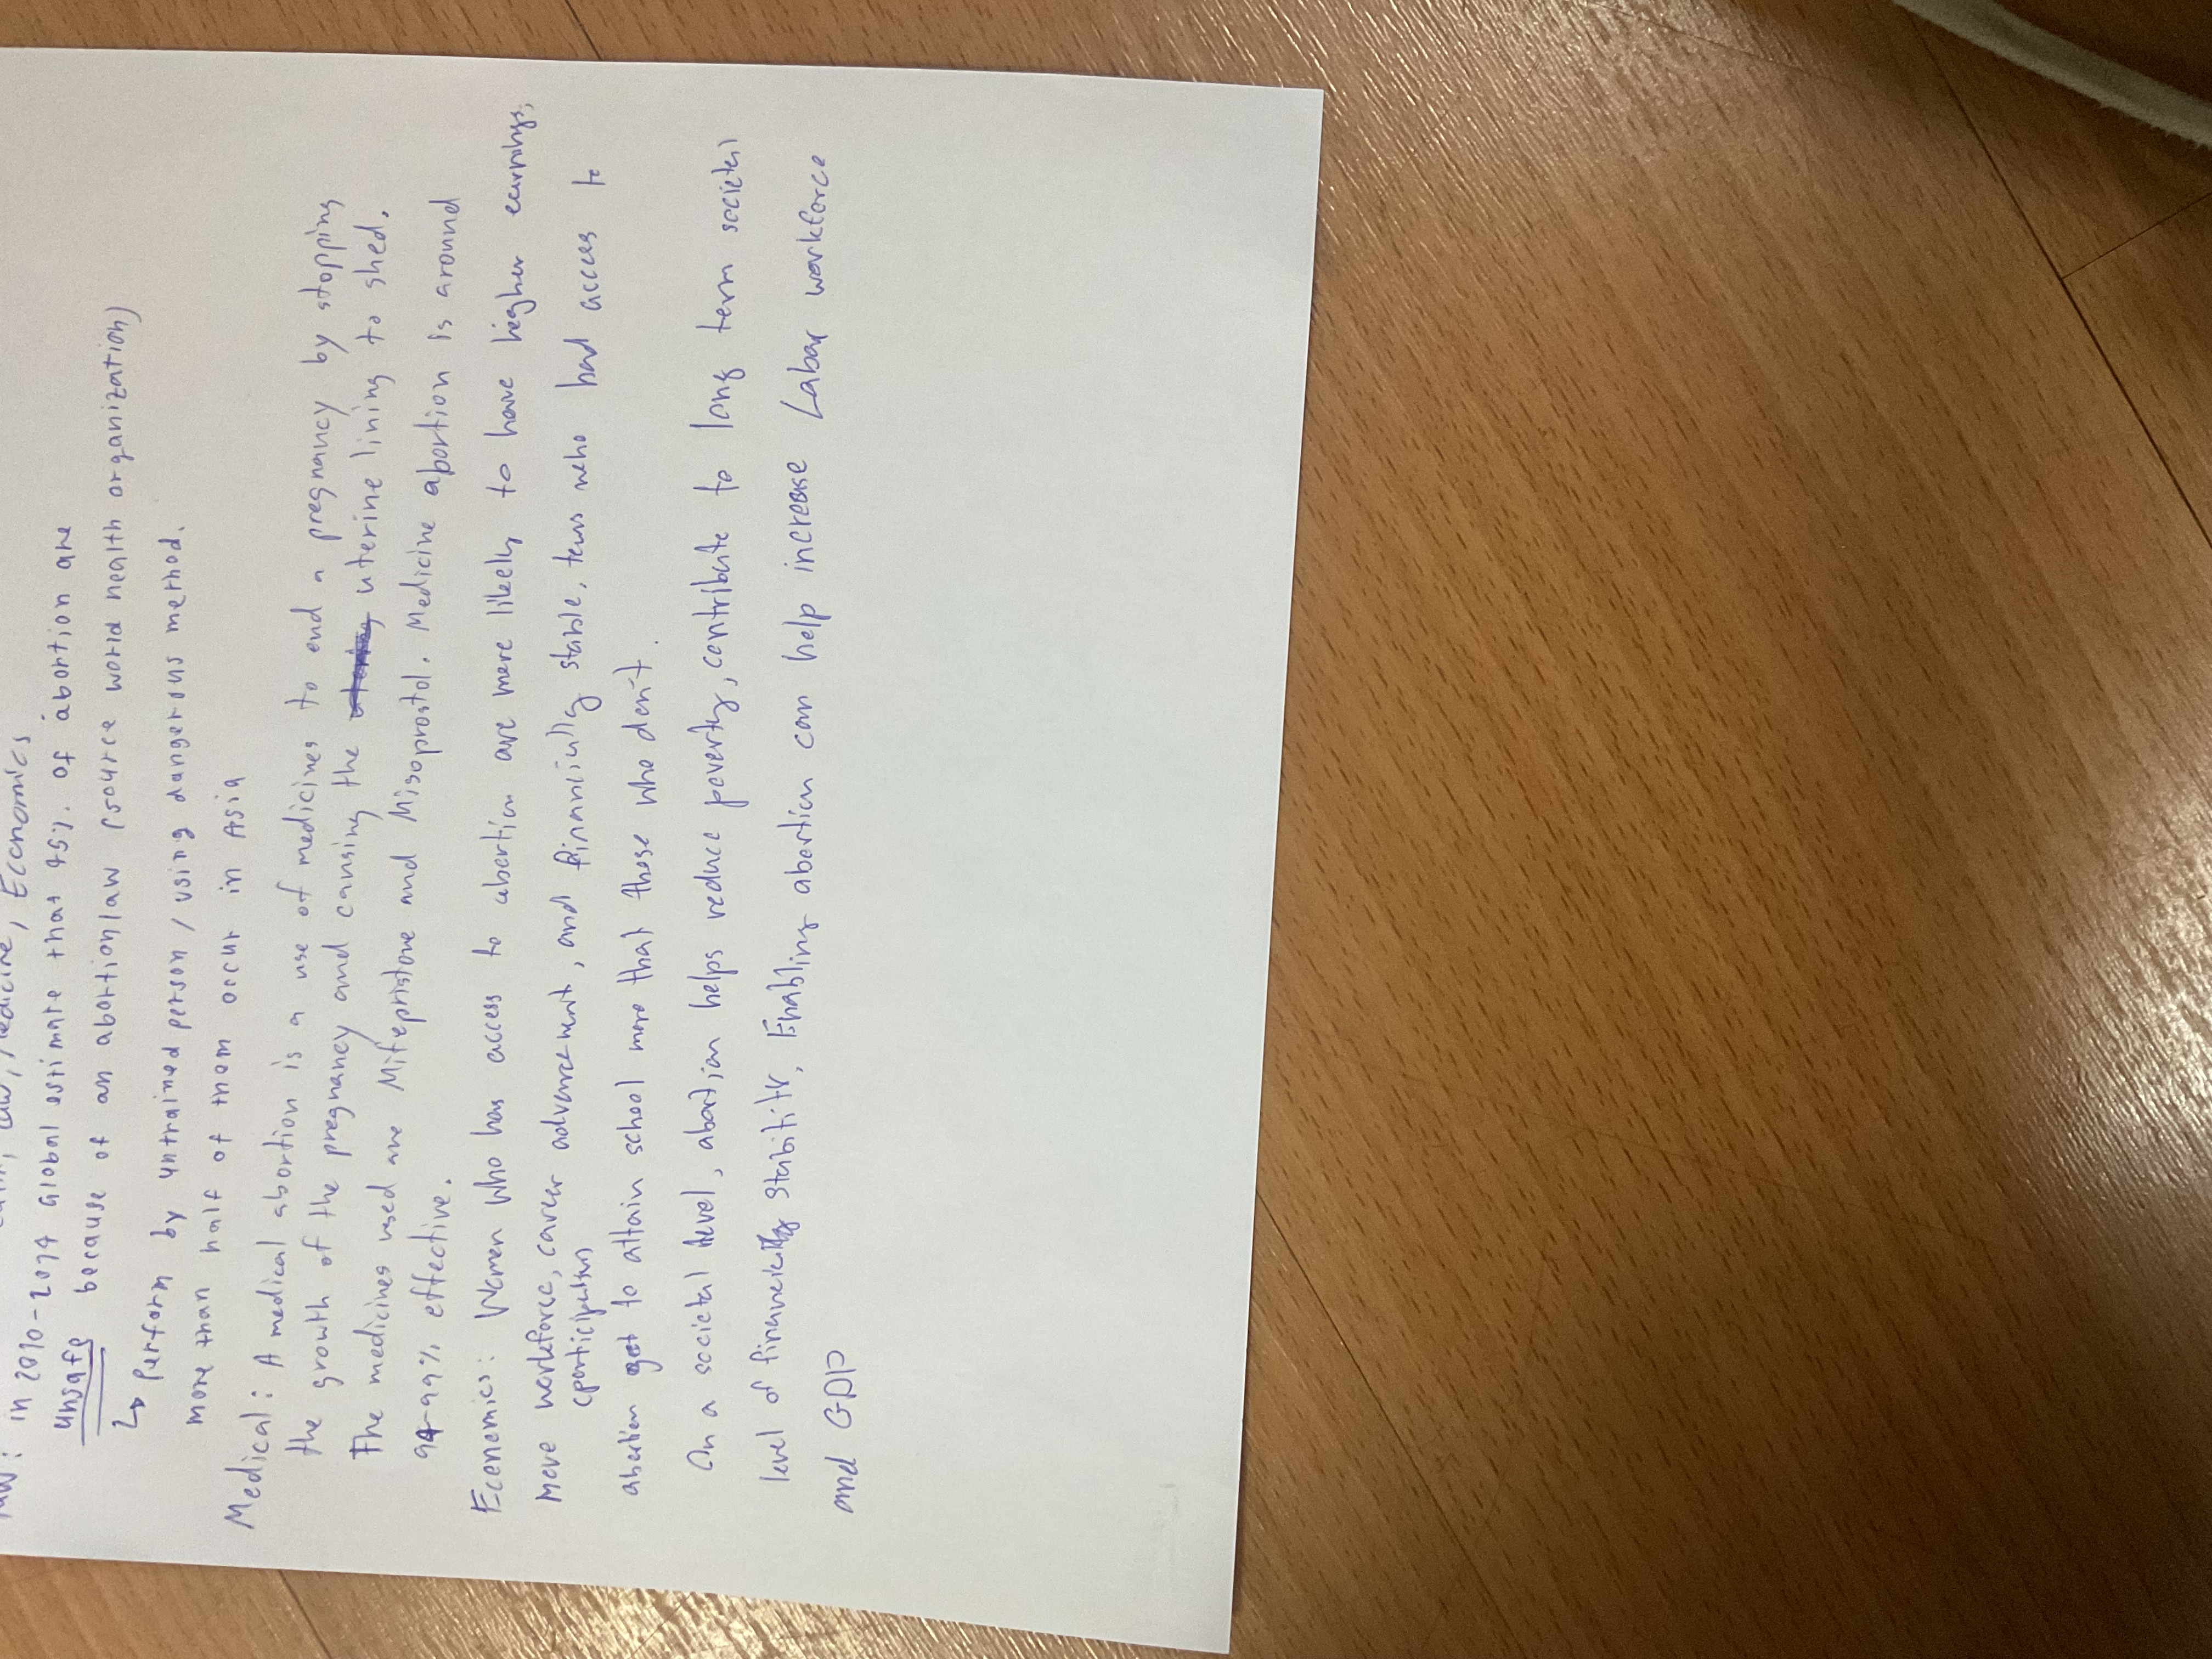 Law, Medicine, Economics
Law: in 2010-2014 Global estimate that 45%. of abortion are
unsafe because of an abortion law (source world health organization)
↳ perform by untrained person / using dangerous method.
more than half of them occur in Asia
Medical: A medical abortion is a use of medicines to end a pregnancy by stopping
the growth of the pregnancy and causing the uterine lining to shed.
The medicines used are Mifepristone and Misoprostol. Medicine abortion is around
94-99% effective.
Economics: Women who has access to abortion are more likely to have higher earnings,
more workforce, career advancement, and financially stable, teens who had access to
(participation)
abortion get to attain school more that those who don't.
On a societal level, abortion helps reduce poverty, contribute to long term societal
level of financially stability. Enabling abortion can help increase Labor workforce
and GDP